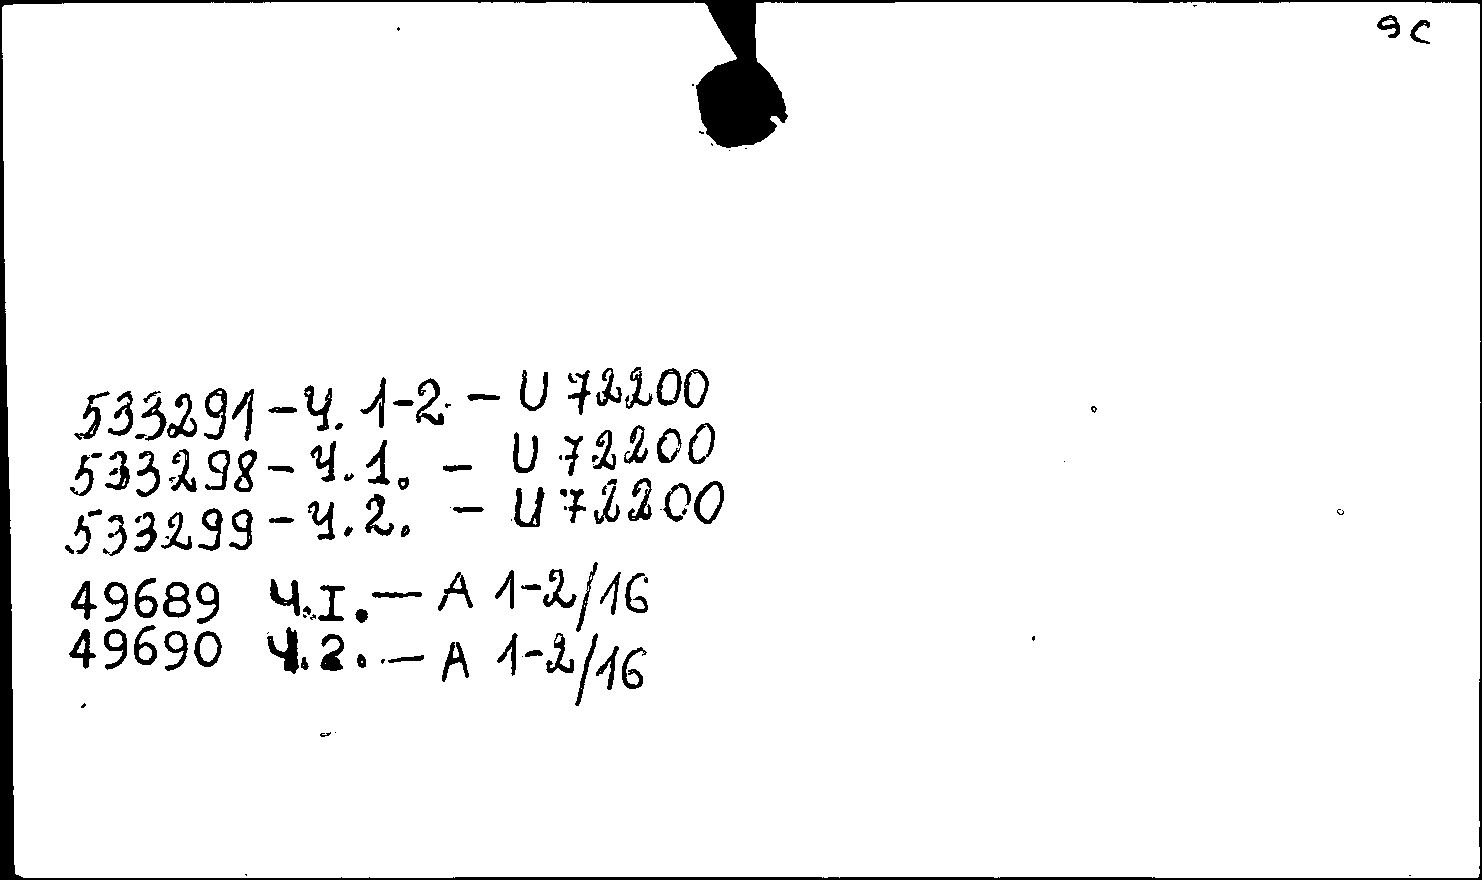 9с
533291 – Ч. 1-2 – U 72200
533298 – Ч. 1. – U 72200
533299 – Ч. 2. – U 72200
49689 Ч.I. — A 1-2/16
49690 Ч.2. — A 1-2/16